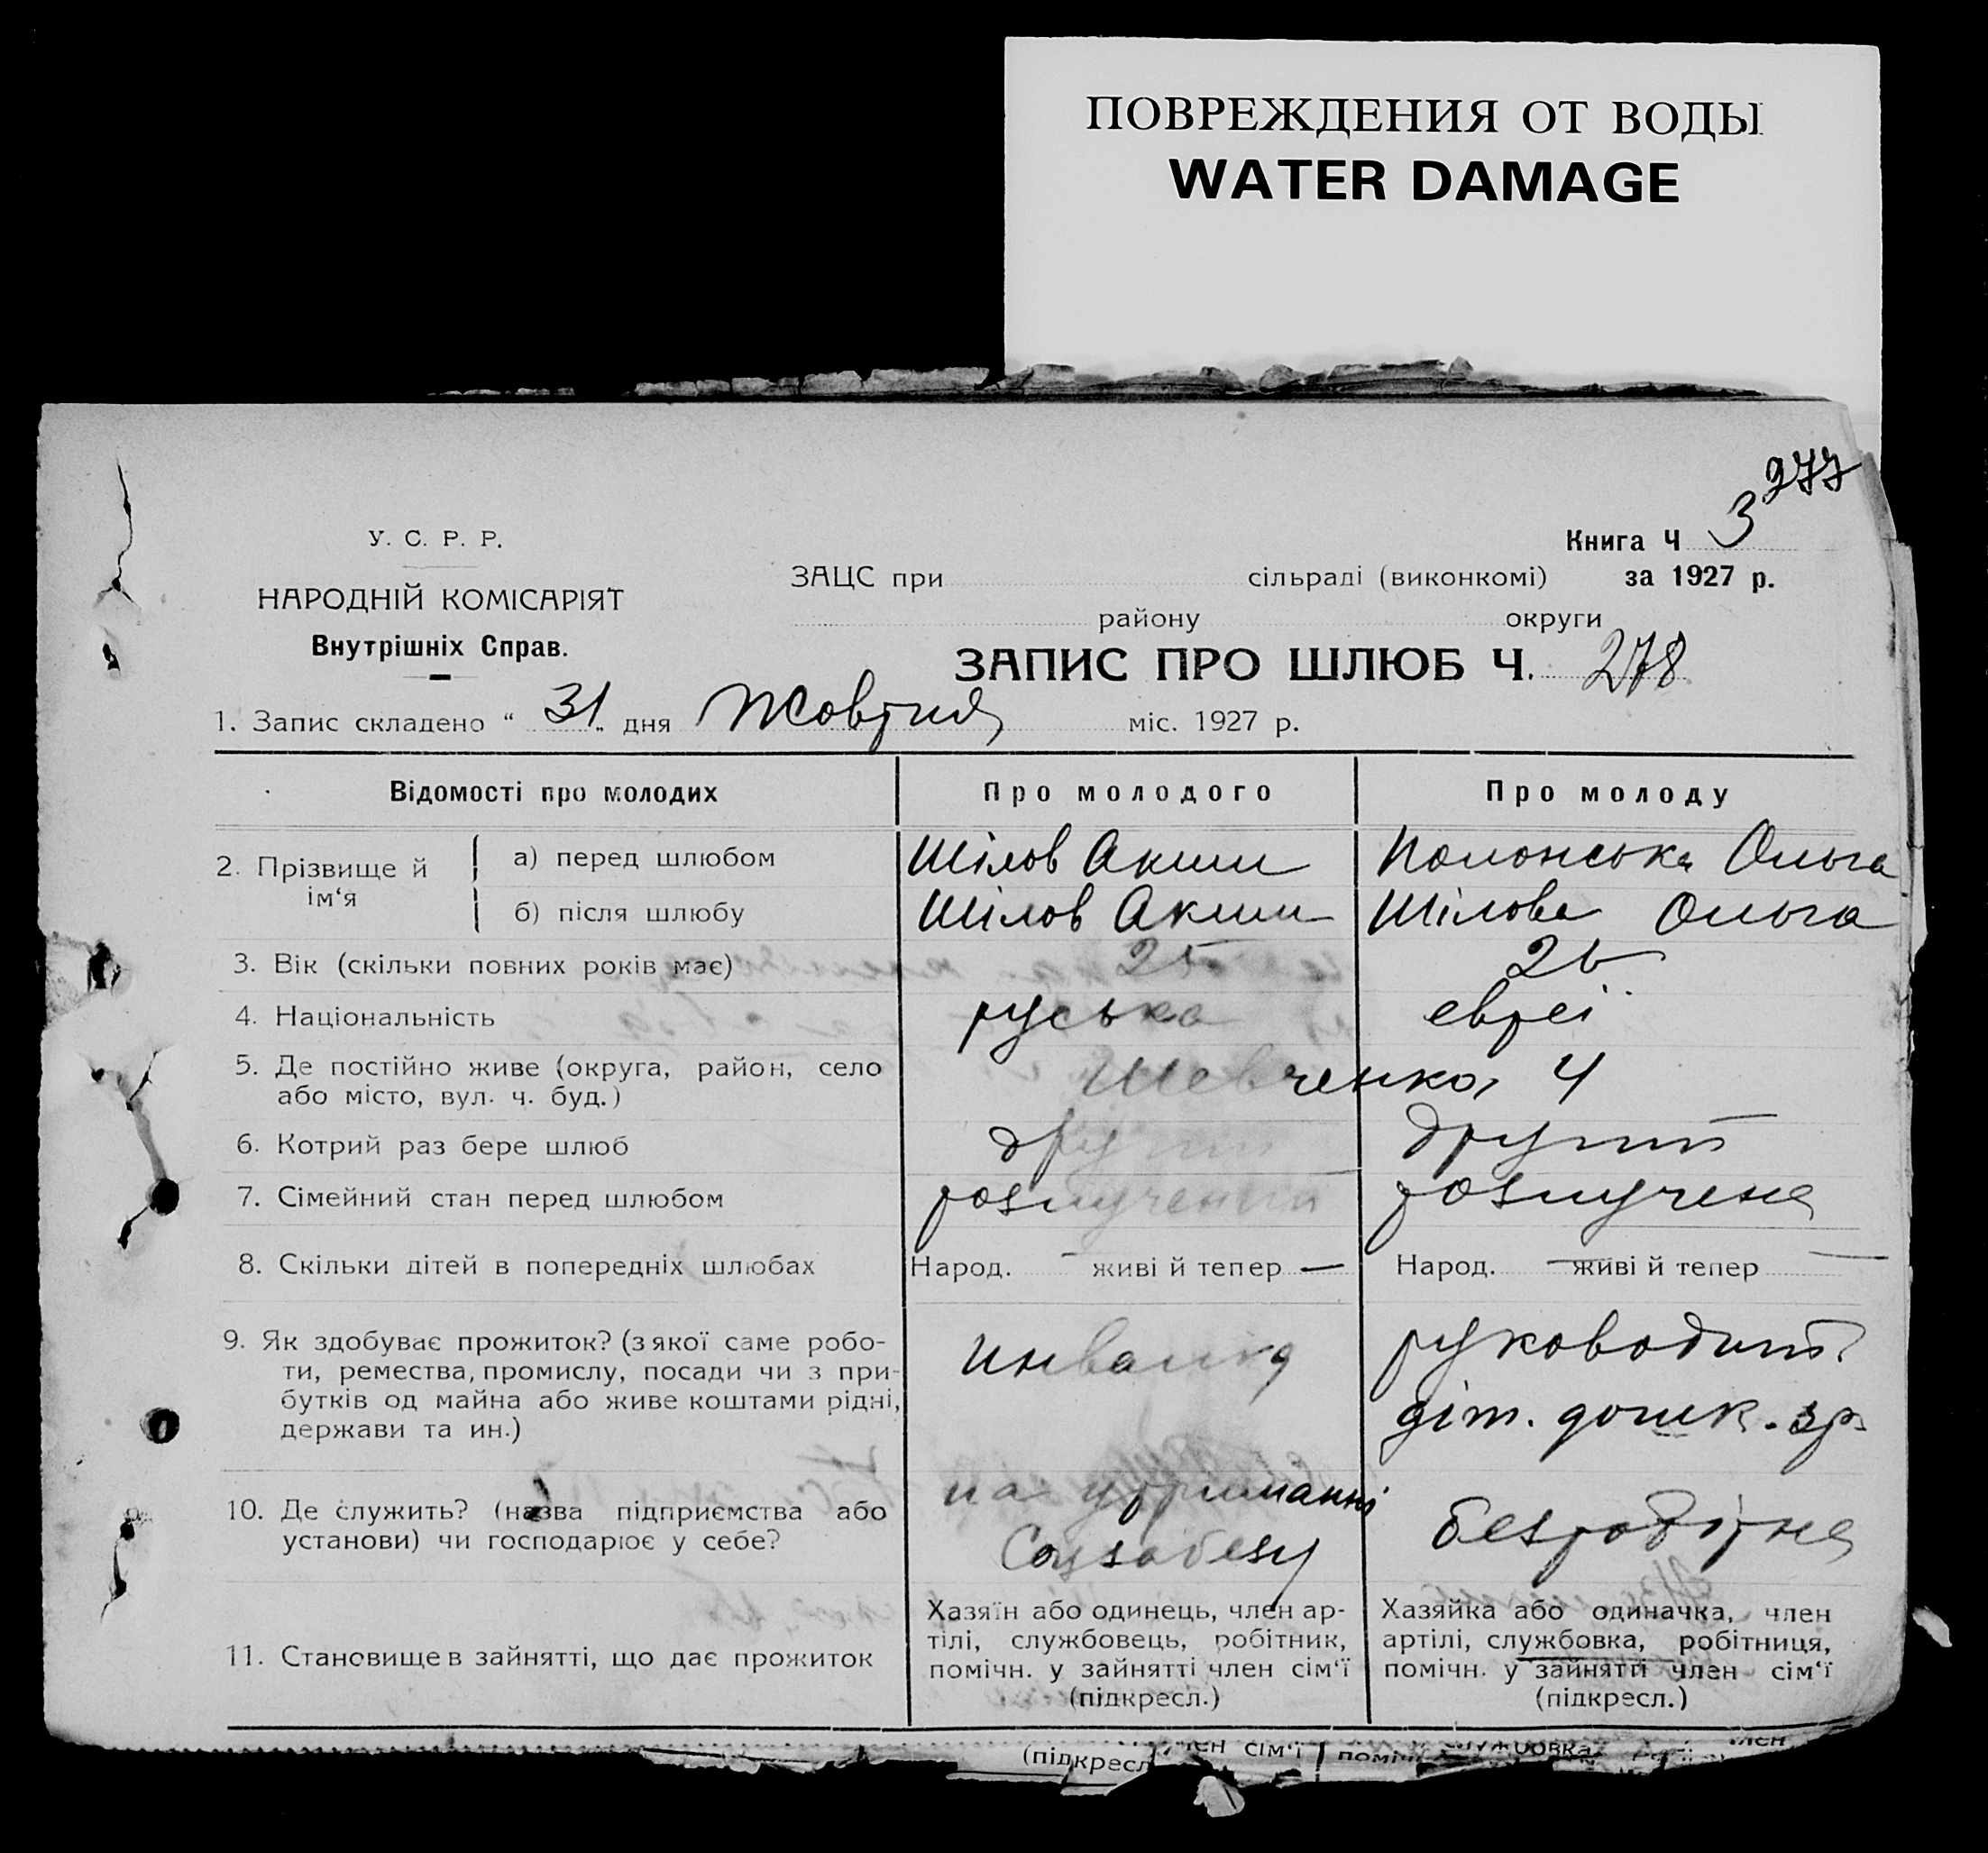 ПОВРЕЖДЕНИЯ ОТ ВОДЫ
WATER DAMAGE
277
У. С. Р. Р.
НАРОДНІЙ КОМІСАРІЯТ
Внутрішніх Справ.
Книга Ч 3
ЗАЦС при сільраді (виконкомі) за 1927 р.
району округи
ЗАПИС ПРО ШЛЮБ Ч. 278
1. Запис складено “ 31 „ дня Жовтня міс. 1927 р.
Відомості про молодих Про молодого Про молоду
2. Прізвище й ім‘я а) перед шлюбом Шілов Аким Полонська Ольга
б) після шлюбу Шілов Аким Шілова Ольга
3. Вік (скільки повних років має) 25 26
4. Національність руська евреї
5. Де постійно живе (округа, район, село
або місто, вул. ч. буд.) Шевченка, 4
6. Котрий раз бере шлюб другий другий
7. Сімейний стан перед шлюбом розлучений розлучена
8. Скільки дітей в попередніх шлюбах Народ. — живі й тепер — Народ. — живі й тепер —
9. Як здобуває прожиток? (з якої саме робо-
ти, ремества, промислу, посади чи з при-
бутків од майна або живе коштами рідні,
держави та ин.)
инвалид
руководит.
діт. дошк. зр.
10. Де служить? (назва підприємства або
установи) чи господарює у себе?
на утриманні
Соцзабезу
безробітна
11. Становище в зайнятті, що дає прожиток
Хазяїн або одинець, член ар-
тілі, службовець, робітник,
помічн. у зайнятті член сім‘ї
(підкресл.)
Хазяйка або одиначка, член
артілі, службовка, робітниця,
помічн. у зайнятті член сім‘ї
(підкресл.)
(підкресл
сім‘ї